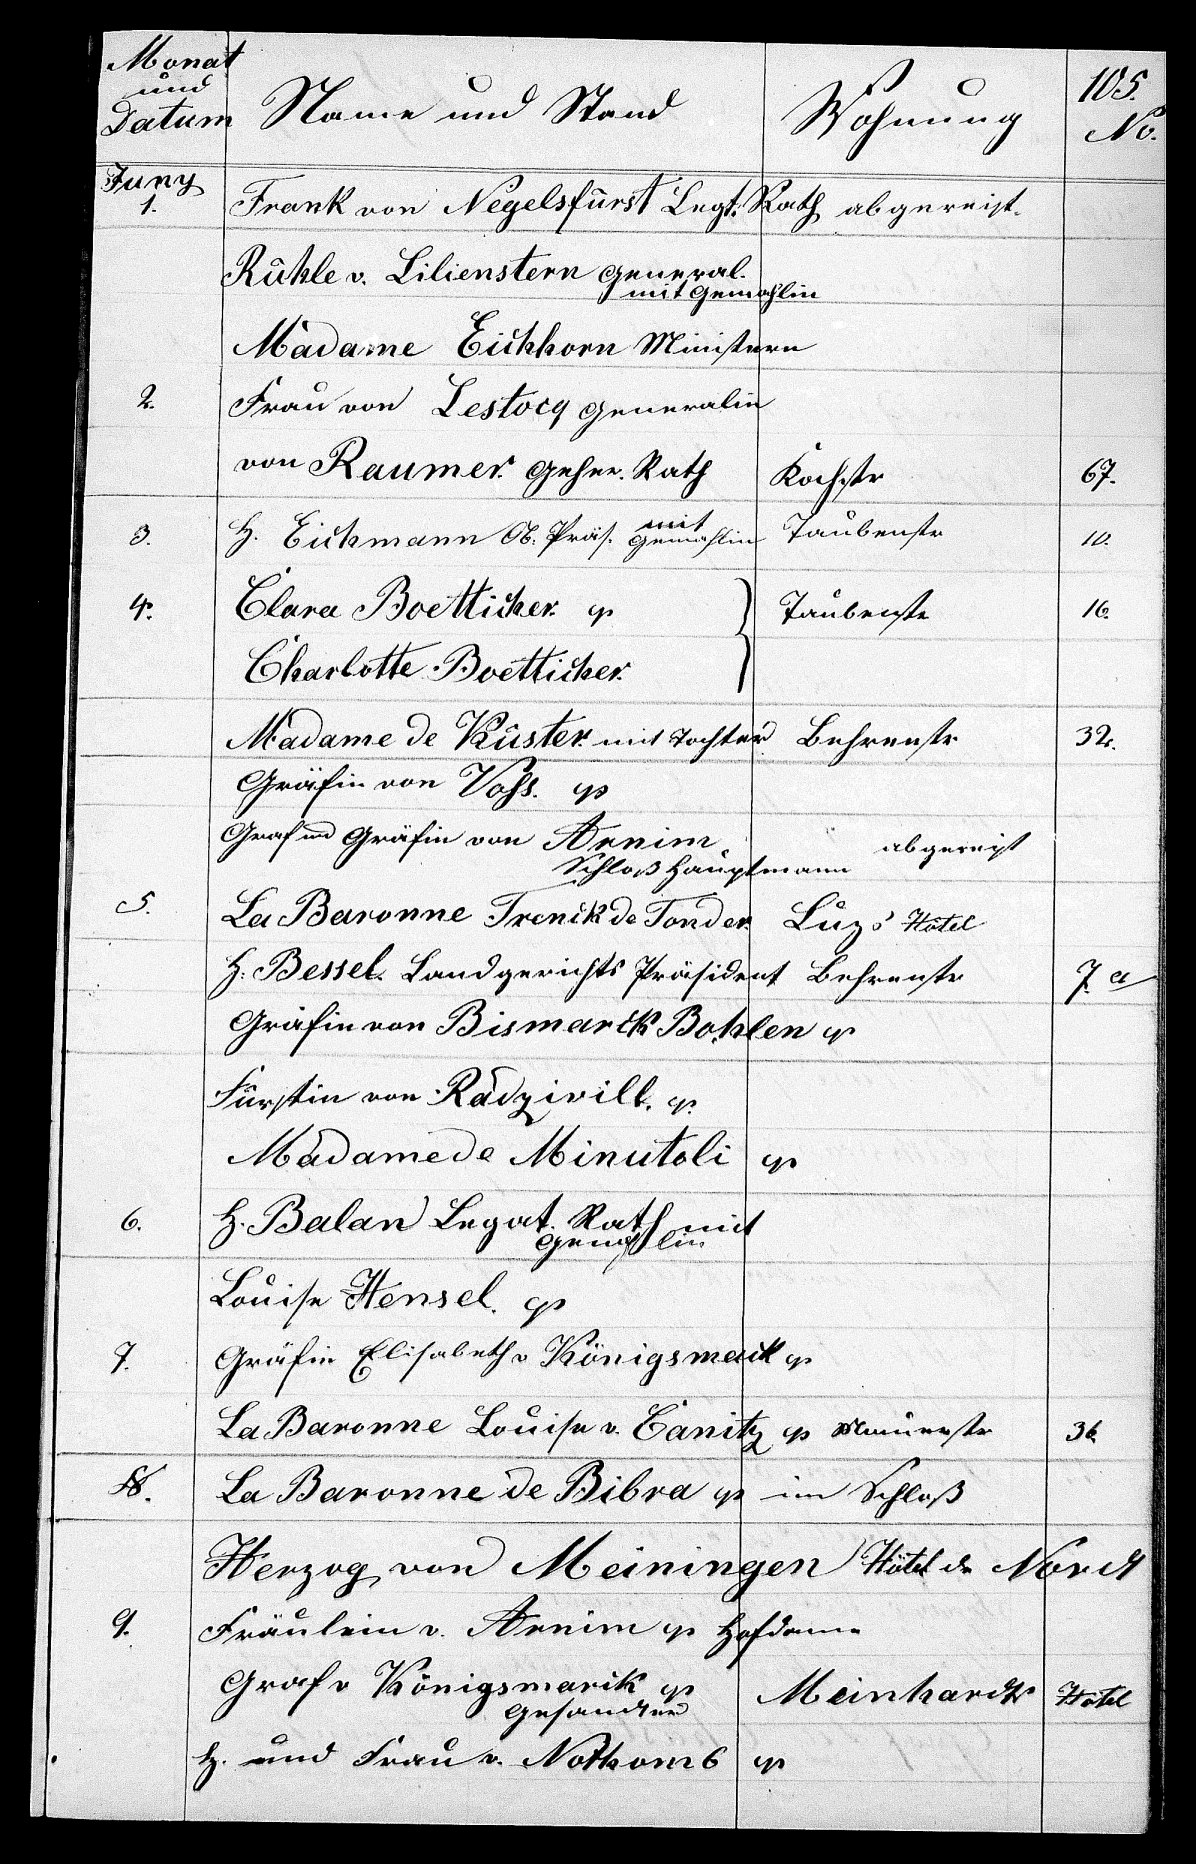 Monat und Datum Name und Stand Wohnung 105. No.
Juny
1. Frank von Negelsfürst Legt. Rath abgereist.
Rühle v. Lilienstern General.
mit Gemahlin
Madame Eichhorn Ministern
2. Frau von Lestocq Generalin
von Raumer. Geher. Rath Kochstr 67.
3. H. Eichmann Ob. Präs. mit Gemahlin Taubenstr 10.
4. Clara Boetticher. Taubenstr 16.
Charlotte Boetticher.
Madame de Küster. mit Tochter Behrenstr 32.
Gräfin von Voss.
Graf und Gräfin von Arnim abgereist
Schloßhauptmann
5. La Baronne Trenck de Tonder. Luz's Hôtel
H. Bessel. Landgerichts Präsident Behrenstr 7. a
Gräfin von Bismarck Bohlen
Fürstin von Radzivill.
Madame de Minutoli
6. H. Balan Legat. Rath mit
Gemahlin
Louise Hensel.
7. Gräfin Elisabeth v Königsmark
La Baronne Louise v. Canitz Mauerstr 36.
8. La Baronne de Bibra im Schloß
Herzog von Meiningen Hôtel de Nord
9. Fräulein v. Arnim Hofdame
Graf v Königsmarik Meinhardts Hotel
Gesandter
H. und Frau v. Nothomb